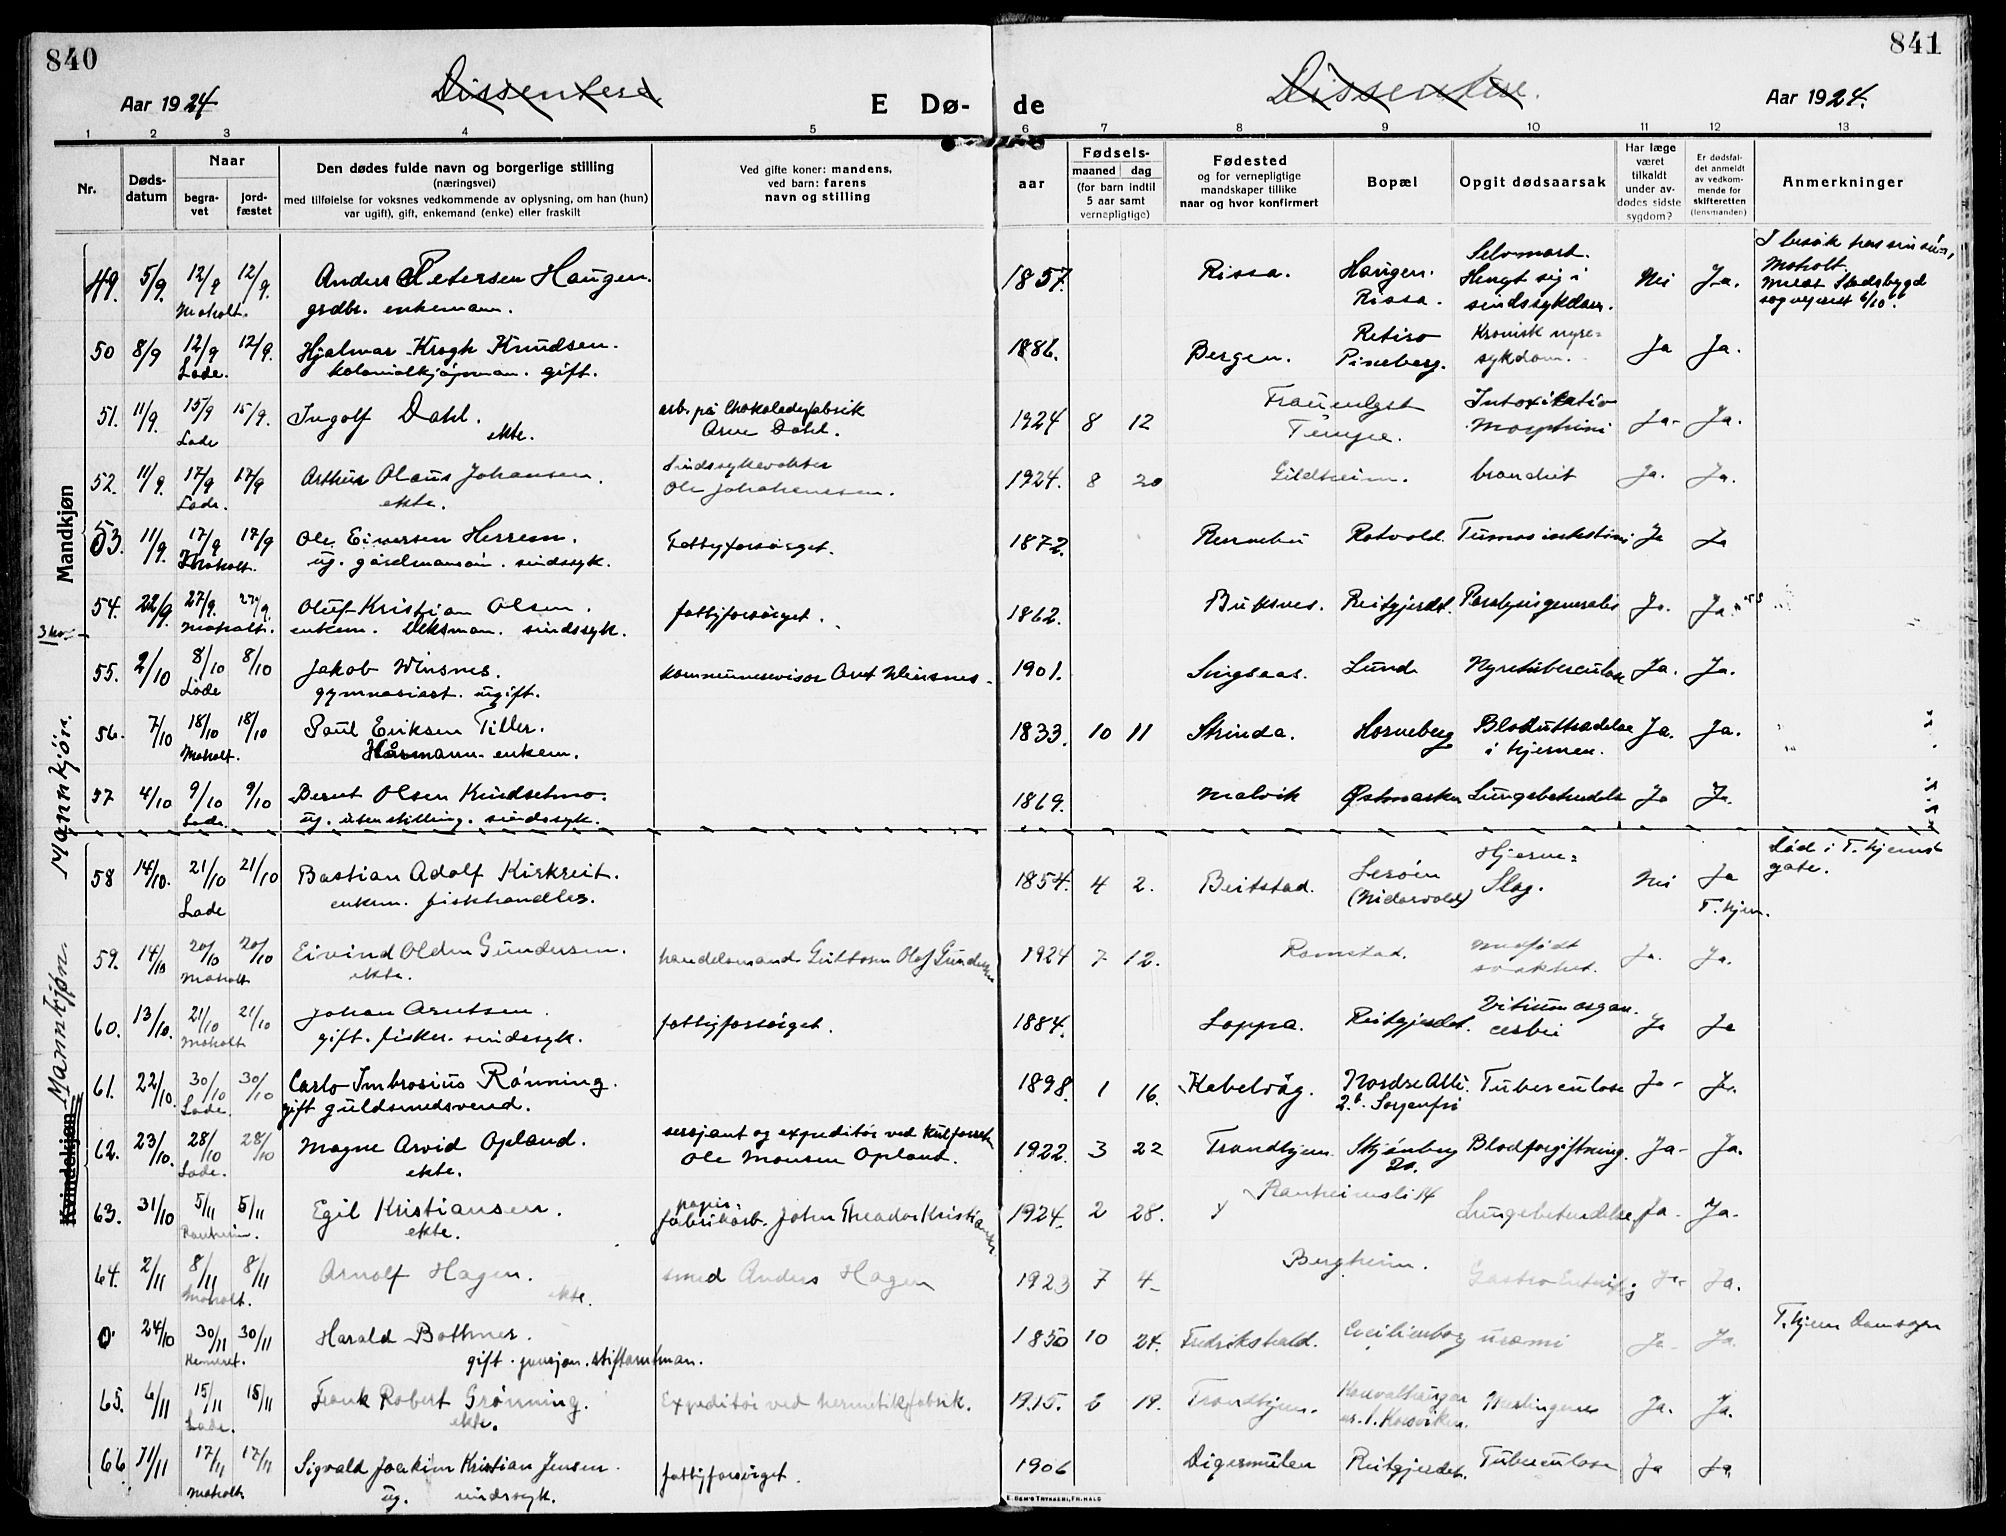 840
841
Aar 1924
Dissentere
E Dø-
de
Dissentere.
Aar 1924.
1 2 3 4 5 6 7 8 9 10 11 12 13
Nr.
Døds-
datum
Naar
begra-
vet
jord-
fæstet
Den dødes fulde navn og borgerlige stilling
(næringsvei)
med tilføielse for voksnes vedkommende av oplysning, om han (hun)
var ugift), gift, enkemand (enke) eller fraskilt
Ved gifte koner: mandens,
ved barn: farens
navn og stilling
aar
Fødsels-
maaned dag
(for barn indtil
5 aar samt
vernepligtige)
Fødested
og for vernepligtige
mandskaper tillike
naar og hvor konfirmert
Bopæl
Opgit dødsaarsak
Har læge
været
tilkaldt
under av-
dødes sidste
sygdom?
Er dødsfal-
det anmeldt
av vedkom-
mende for
skifteretten
(lensmanden)
Anmerkninger
Mandkjøn
Mannkjön.
Kvindekjøn
Mannkjøn
49. 5/9. 12/9 12/9. Anders Petersen Haugen. 1857. Rissa. Haugen. Selvmort. Nei Ja. I besøk hos sin sön,
Moholt. grdbr. enkemann. Rissa. Hengt sig i Moholt.
sindssykdom. Stadsbygd
6/10.
50 8/9 12/9 12/9. Hjalmar Krogh Knudsen. 1886. Bergen. Retiro Kronisk nyre- Ja Ja.
Lade. kolonialkjøpman. gift. Pineberg. sykdom.
51. 11/9. 15/9 15/9. Ingolf Dahl. arb. på Chokoladefabrik 1924 8 12 Intoxikatio Ja- Ja.
Lade ekte. Arne Dahl. Tempe. Morphini
52. 11/9. 17/9 17/9 Arthur Olaus Johansen. Sindssykevokter 1924. 8 20 Gildheim. Ja. Ja.
Lade. ekte. Ole Johannessen.
53. 11/9. 17/9 17/9 Ole Eiversen Herrem. Fattigforsörget. 1872. Rennebu Rotvold. Ja Ja
Moholt. ug. gårdmannsön. sindssyk.
54. 22/9. 27/9. 27/9. Oluf Kristian Olsen. fattigforsörget. 1862. Buksnes. Reitgjerdet. Paralysis generalis Ja. Ja.
Moholt. enkem. sindssyk.
55. 2/10 8/10 8/10 Jakob Winsnes. kommunerevisor Arnt Winsnes. 1901. Singsaas. Lunde Nyretuberculose Ja. Ja.
Lade gymnasiast. ugift.
56. 7/10 18/10 18/10 Paul Eriksen Tiller. 1833. 10 11 Strinda. Horneberg Bloduttrædelse Ja. Ja.
Moholt. Kårmann. enkem. i hjernen.
57 4/10 9/10 9/10 Bernt Olsen Kindsetmo. 1869. Malvik Østmarken Lungebetendelse Ja Ja.
Lade. ug. uten stilling. sindssyk.
58 14/10. 21/10 21/10 Bastian Adolf Kirkreit. 1854. 4 2. Beitstad. Leröen Hjerne- Nei Ja Död i T.hjems
Lade enkem. fiskhandler. (Nidarvold) Slag. T.hjem. gate.
59. 14/10 20/10 20/10 Eivind Olden Gundersen. handelsmand Guttorm Olaf Gundersen 1924 7 12. Romstad. medfödt Ja. Ja.
Moholt ekte. svakhet.
60. 13/10. 21/10 21/10 Johan Arntsen. fattigforsörget. 1884. Loppa. Reitgjerdet. Vitium organ. Ja Ja
Moholt gift. fisker. sindssyk. cordis
61. 22/10. 30/10 30/10 Carlo Imbrosius Rönning. 1898. 1 16. Kabelvåg. Nordre Allé Tuberculose Ja- Ja.
Lade. gift guldsmedsvend. 2.b Sorgenfri
62. 23/10. 28/10 28/10 Magne Arvid Opland. sersjant og expeditör ved Kulforret. 1922. 3 22 Trondhjem Skjönberg Blodforgiftning. Ja- Ja.
Lade. ekte. Ole Monsen Opland. 20.
63. 31/10 5/11 5/11 Egil Kristiansen. papir- 1924. 2 28. Ranheimslitt Lungebetendelse Ja- Ja.
Ranheim. ekte. fabrikarb. John Theodor Kristiansen
64. 2/11 8/11 8/11 Arnolf Hagen. smed Anders Hagen 1923 7 4- Bergheim. Gastro Enteritis Ja- Ja.
Moholt. ekte.
0 24/10 30/11 30/11 Harald Bothner. 1850 10 24. Fredrikshald. Cecilienborg uræmi Ja- Ja. T.hjem Domsogn
Kremert. gift. pensjon. stiftamtman.
65. 6/11 15/11 15/11 Frank Robert Grönning. Expeditör ved hermetikfabrik. 1915. 6 19. Trondhjem. Ja. Ja.
Lade. ekte.
66 11/11 17/11 17/11 Sigvald Joakim Kristian Jensen. fattigforsörget. 1906 Digermulen Reitgjerdet. Tuberculose Ja Ja.
Moholt ug. sindssyk.
E. SEM'S TRYKKERI, FR.HALD